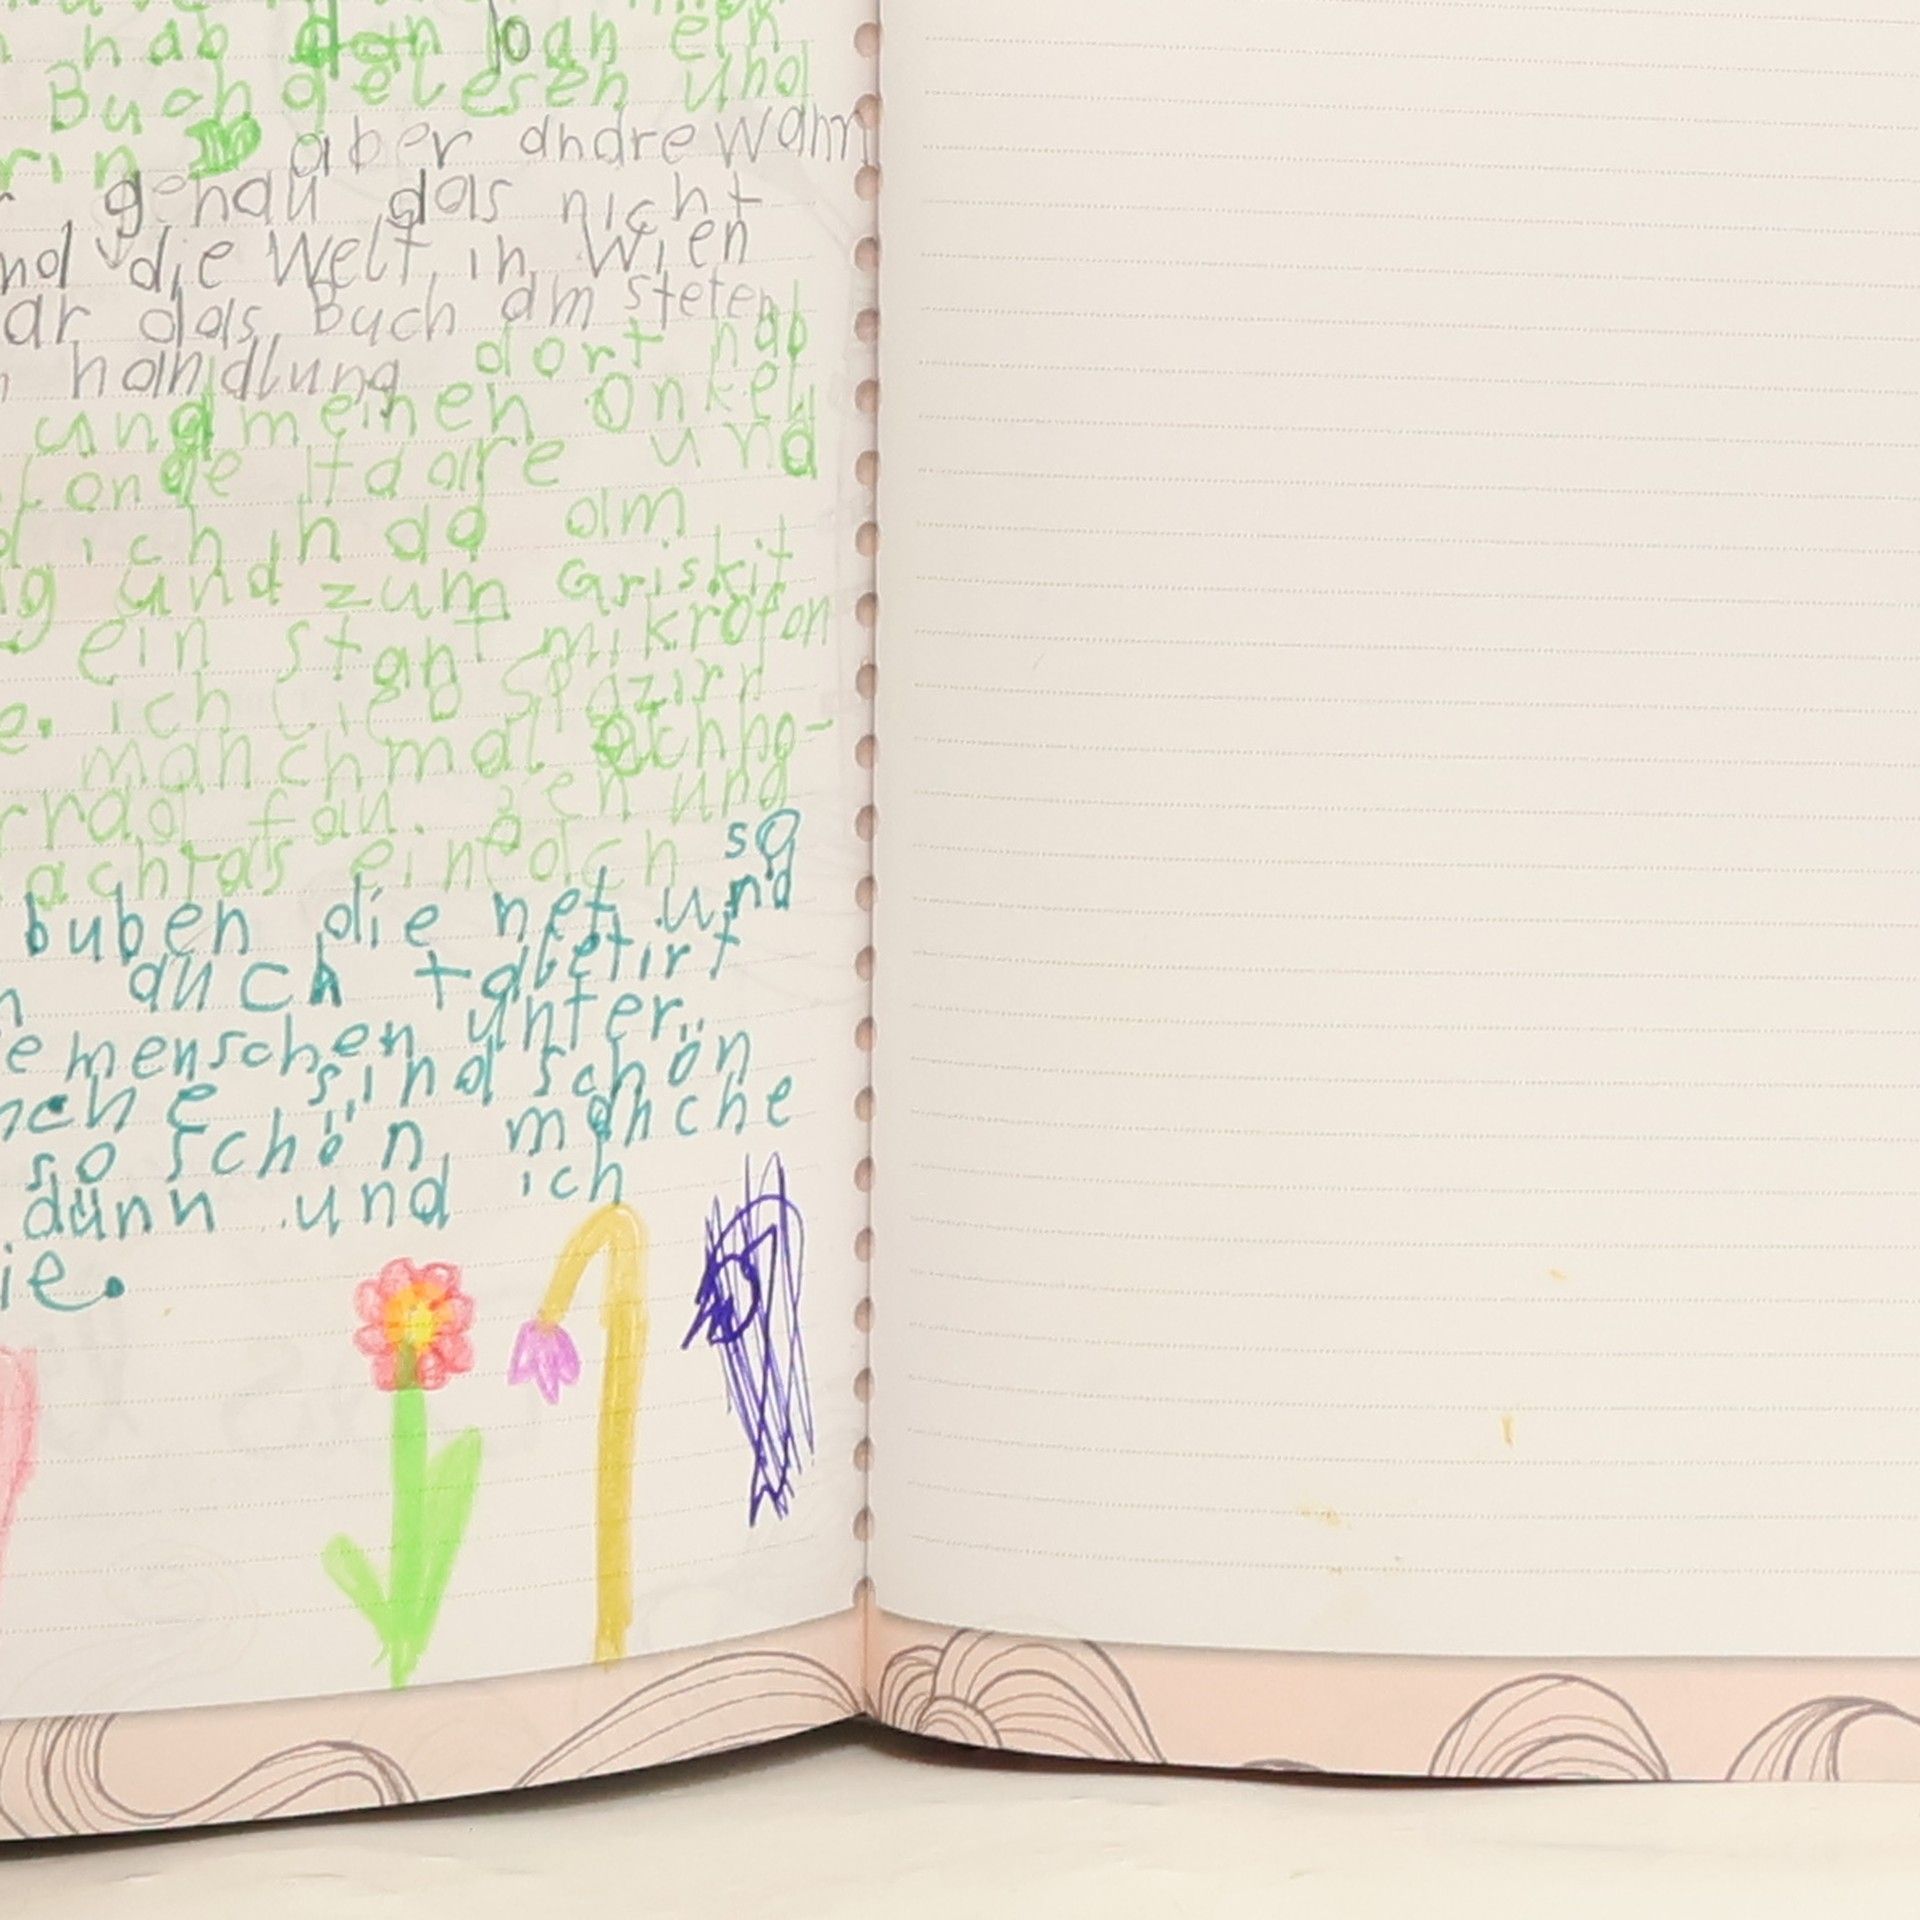 hab dan
Buch gelesen und
rin aber andre wahr
genau das nicht
nd die Welt in Wien
ar das Buch am steten
handlung dort hab
und meinen Onkel
und
ich in da am
g und zum Griskit
ein stant mikrofon
e. ich lieb Spazirn
manchmal
rrad fan. zen und
achtras einfach so
buben die net und
n auch tatetirt
e menschen unter
nche sind schön
so schön manche
dünn und ich
ie.